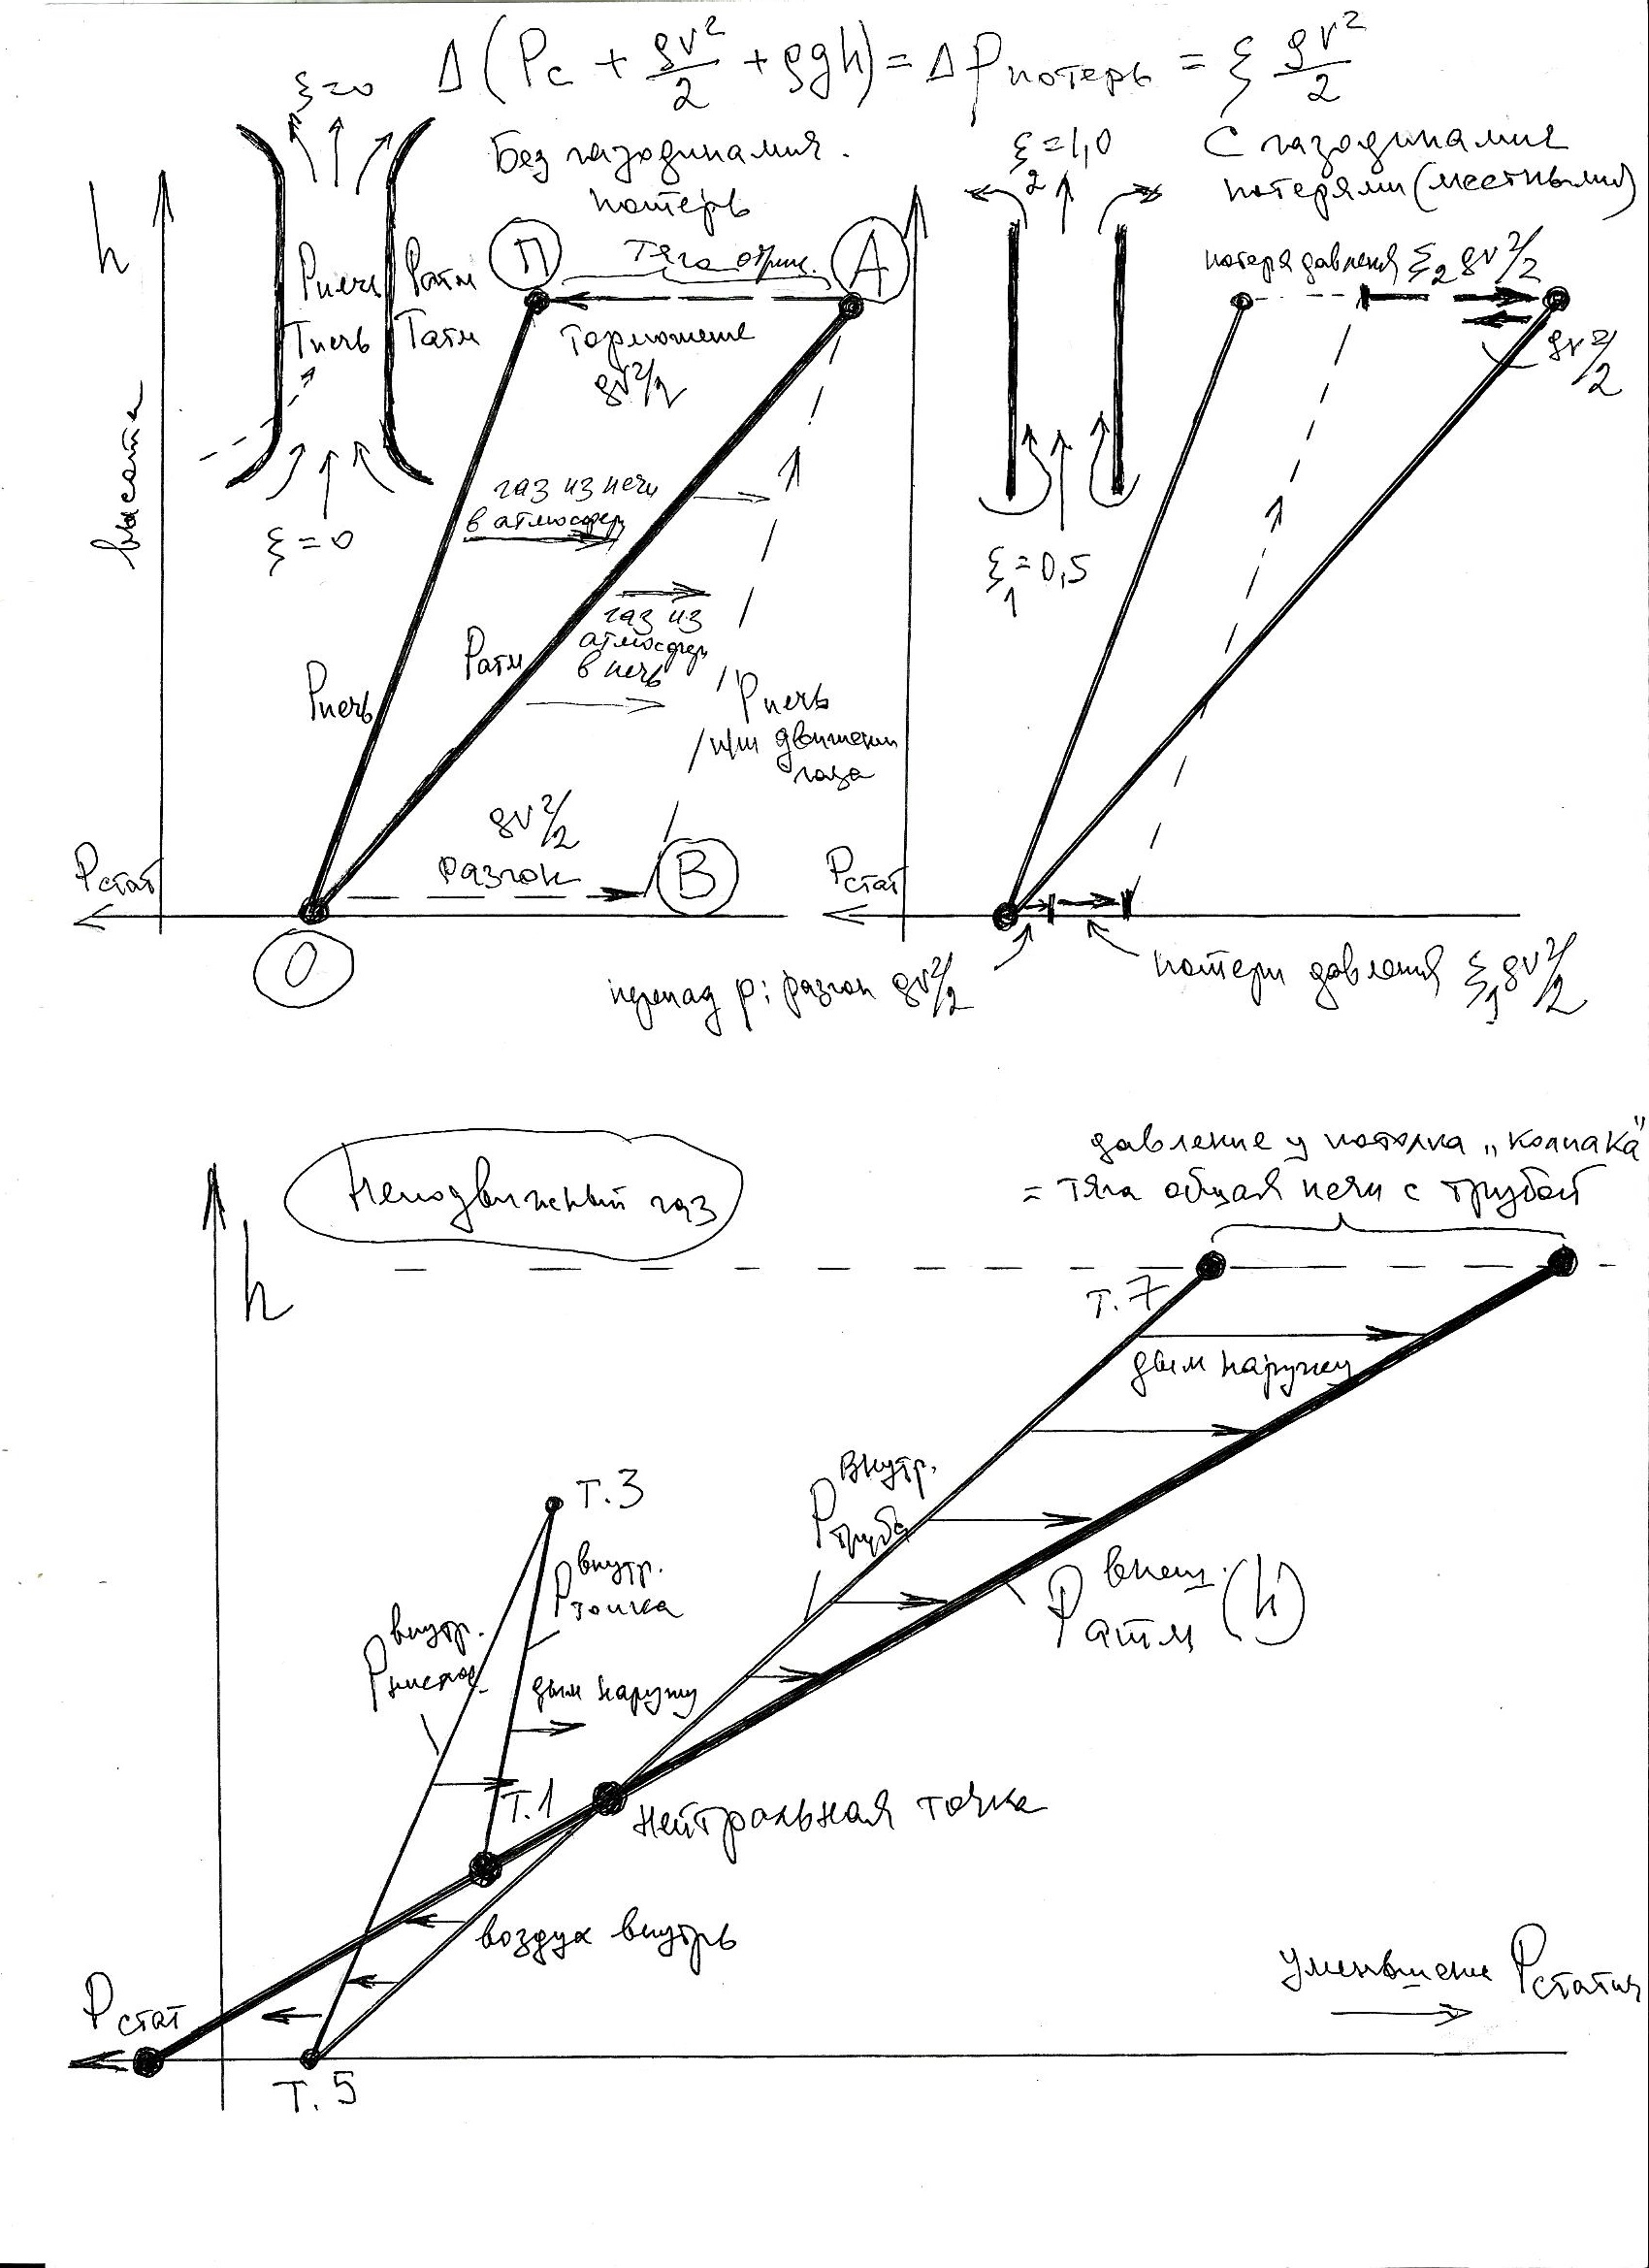 Δ(Pс + ρv²/2 + ρgh) = ΔPпотерь = ξ ρv²/2
ξ=0
Без газодинамич.
потерь
ξ₂=1,0
С газодинамич
потерями (местными)
h
высота
Pпечь
Tпечь
Pатм
Tатм
ξ=0
П
тяга отриц.
А
Торможение
ρv²/2
газ из печи
в атмосферу
газ из
атмосферы
в печь
Pпечь
Pатм
Pпечь
при движении
газа
ρv²/2
разгон
В
Pстат
О
потеря давления ξ₂ρv²/2
ρv²/2
ξ₁=0,5
Pстат
перепад p: разгон ρv²/2
потери давления ξ₁ρv²/2
Неподвижный газ
давление у потолка „колпака"
= тяга общая печи с трубой
h
т.7
дым наружу
т.3
Pвнутр. труба
Pвнутр. топка
Pвнеш. атм (h)
Pвнутр.
дым наружу
т.1
нейтральная точка
воздух внутрь
Pстат
т.5
уменьшение Pстатич